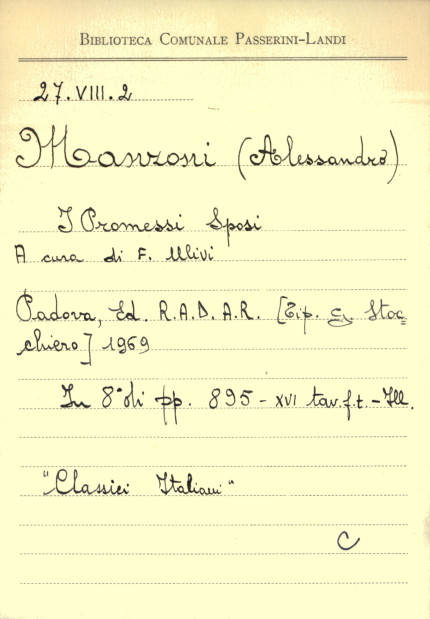 BIBLIOTECA COMUNALE PASSERINI-LANDI
27.VIII.2
Manzoni (Alessandro)
I Promessi Sposi
A cura di F. Ulivi
Padova, Ed. R.A.D.A.R. [Tip. G. Stoc=
chiero] 1969
In 8° di pp. 895 - XVI tav. f.t. - Ill.
"Classici Italiani"
C